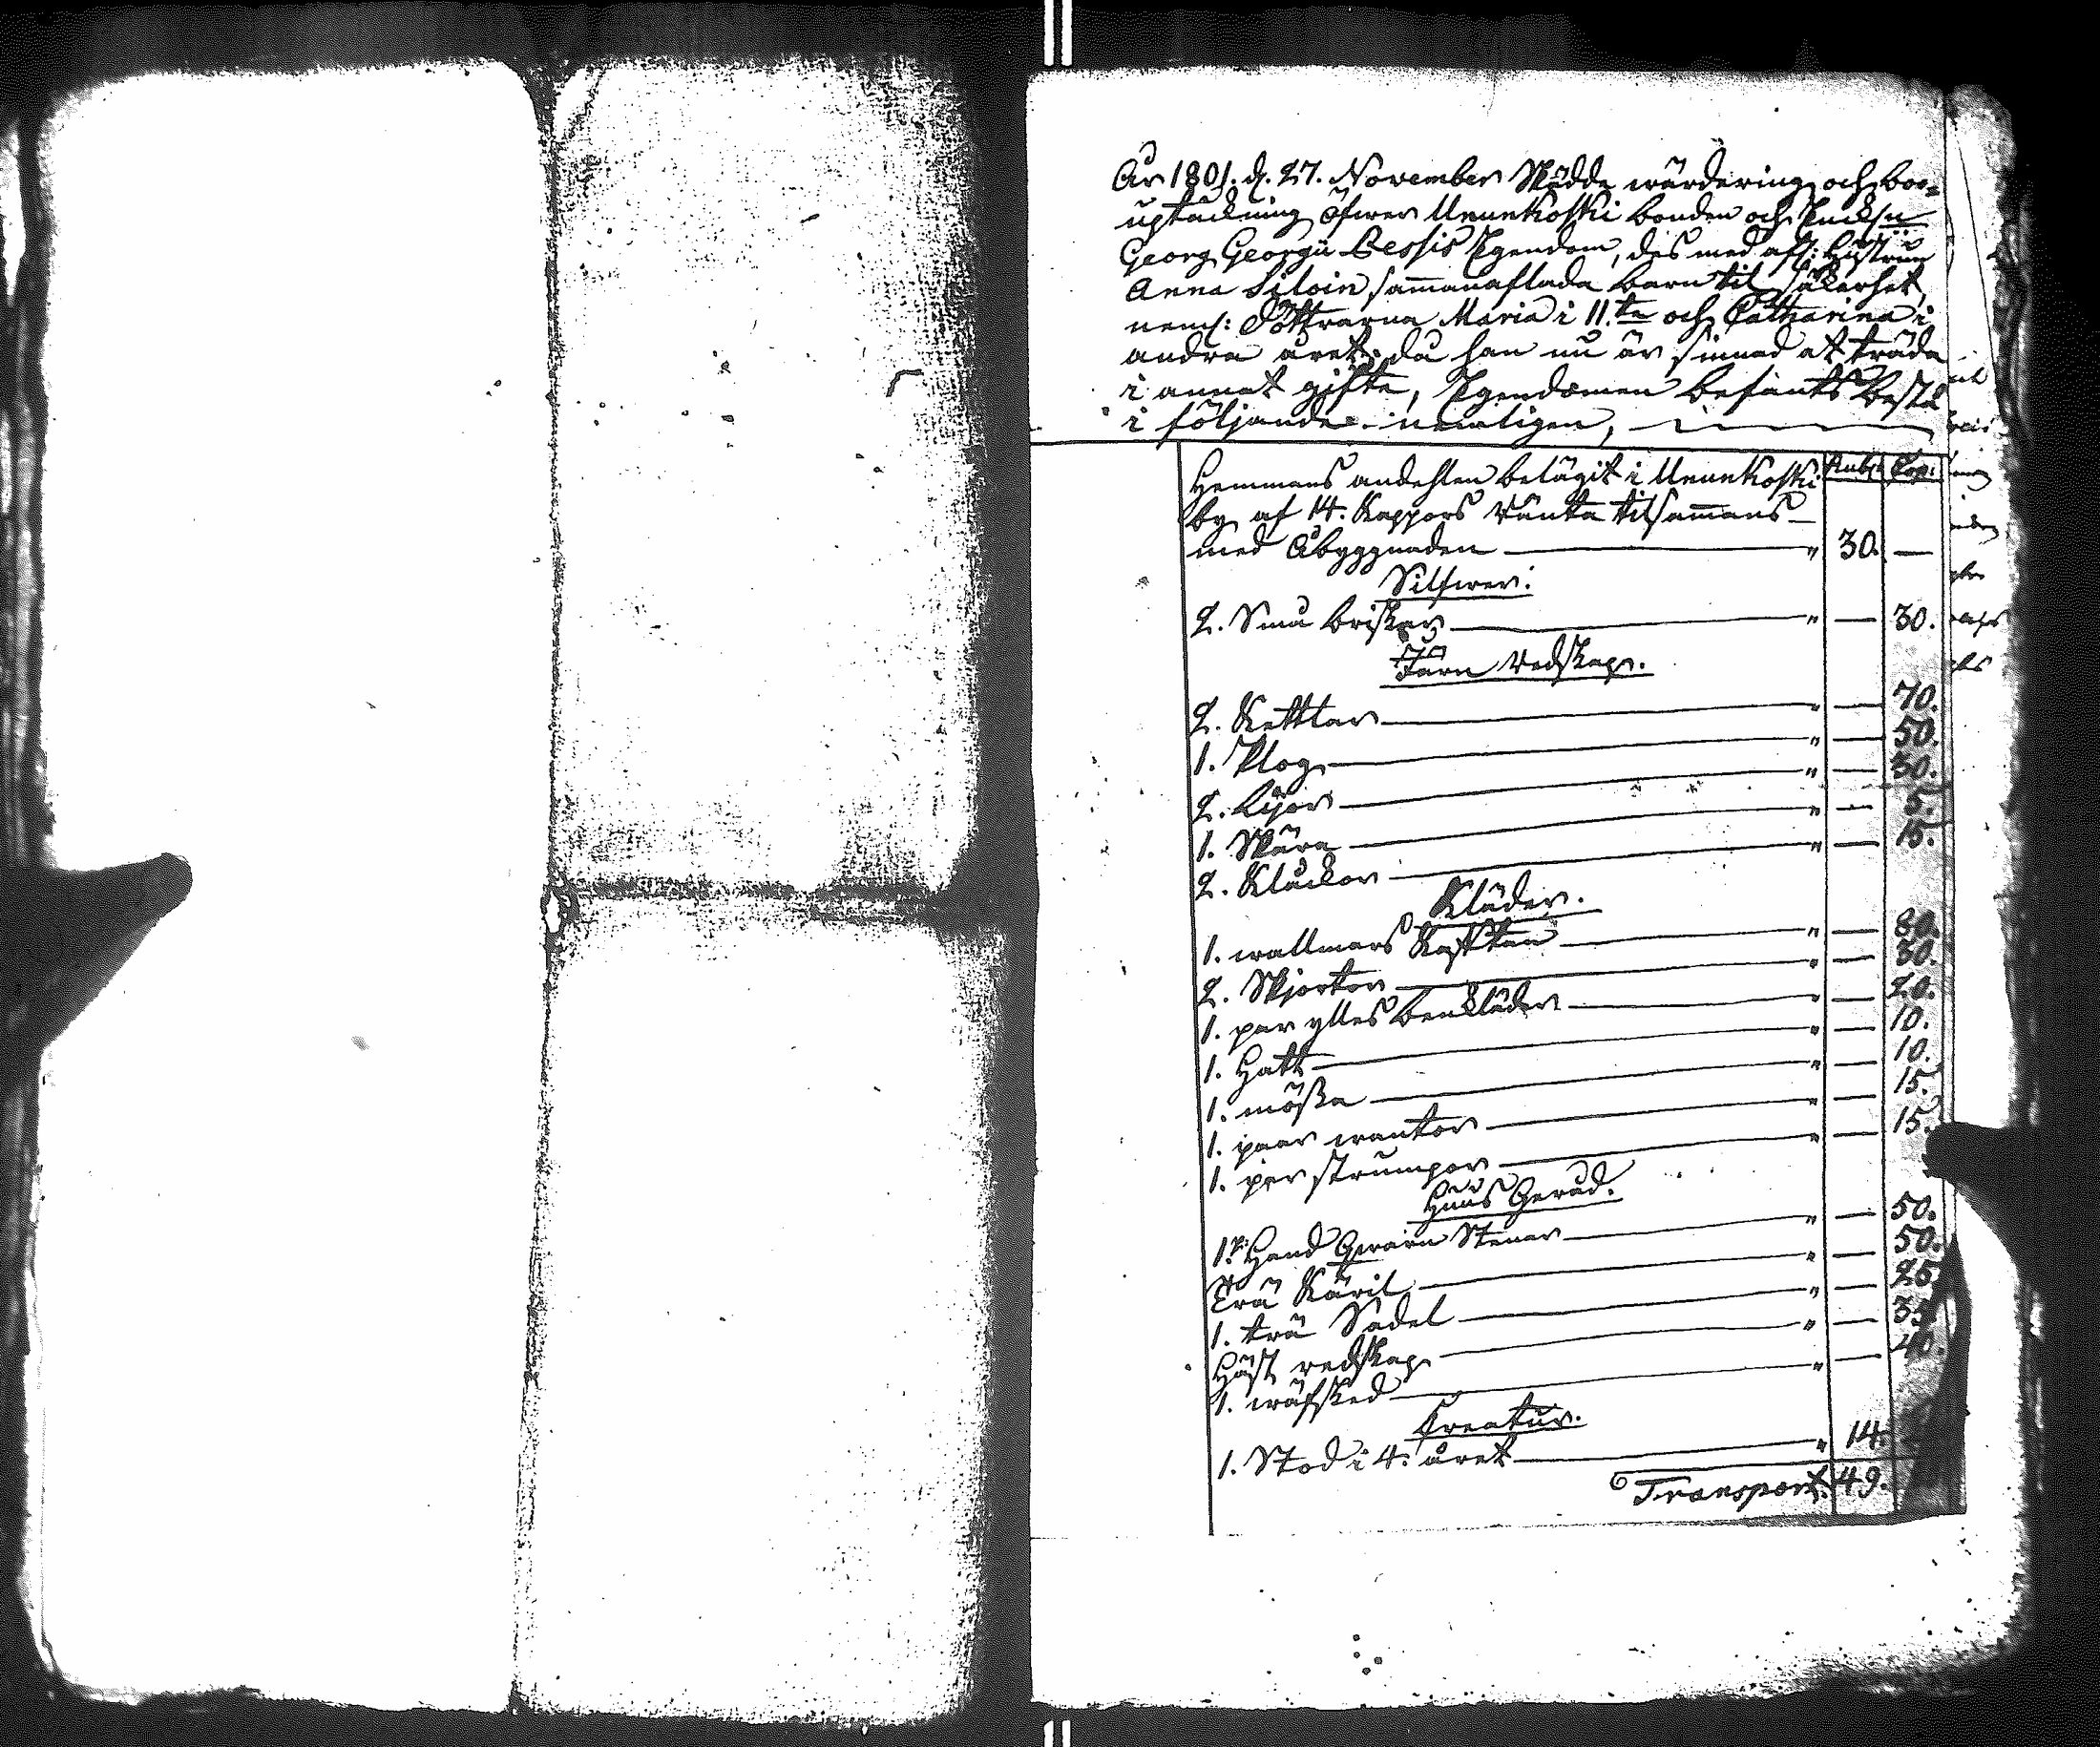 År 1801. d. 27. November Skedde wärdering och boo=
uptäckning öfwer Unnunkoski bonden och Enckl:n
Georg Georgii Bessis Egendom, des med afl: hustrun
Anna Siloin sammanaflada barn til säkerhet,
neml: Döttrarna Maria i 11.te och Catharina i
andra året; då han nu är sinnad at träda
i annat gifte, Egendomen befants bestå
i följande nemligen,
Hemmans andehlen belägit i Unnunkoski Rub: Cop:
by af 14. Kappors ränta tilsammans
med Åbyggnaden — " 30. —
Silfwer:
2. Små brisker — " — 30.
Järn Redskap.
2. Kettlar — " — 70.
1. Plog — " — 50.
2. Lijor — " — 30.
1. Skära — " — 5.
2. Kluckor — " — 15.
Kläder.
1. wallmars Kafftan — " — 80.
2. Skjortor — " — 30.
1. par ylles benkläder — " — 20.
1. Hatt — " — 10.
1. mössa — " — 10.
1. paar wantar — " — 15.
1. par strumpor — " — 15.
Huus Geråd.
1. P: Hand Qwarn Stenar — " — 50.
Trä Käril — " — 50.
1. trä Sadel — " — 25.
Häst redskap — " — 35.
1. wäfsked — " — 40.
Creatur.
1. Stod i 4: året — " 14.
Transport. 49.